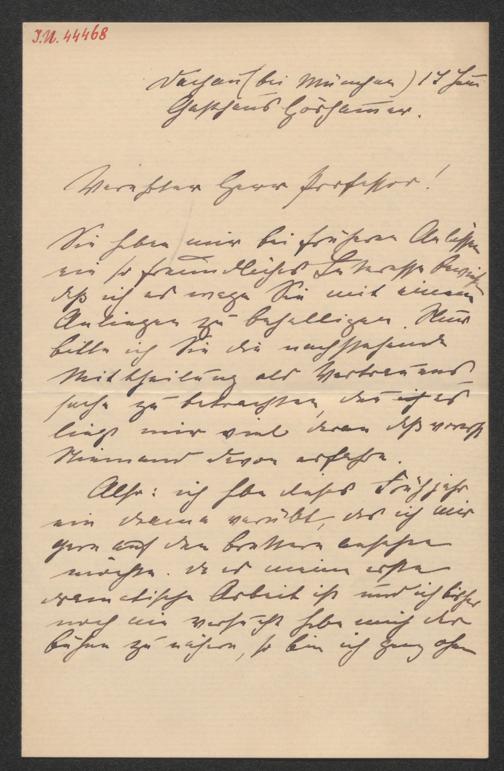 I.N. 44468
Dachau (bei München) 17 Juni
Gasthaus Hörhamer.
Verehrter Herr Professor!
Sie haben mir bei früheren Anlässen
ein so freundliches Interesse bewiesen
daß ich es wage Sie mit einem
Anliegen zu behelligen. Nur
bitte ich Sie die nachstehende
Mittheilung als Vertrauens
sache zu betrachten, da es
liegt mir viel daran daß vorerst
Niemand davon erfahre.
Also: ich habe dieses Frühjahr
ein Drama verübt, das ich mir
gern auf den Brettern ansehen
möchte. Da es meine erste
dramatische Arbeit ist und ich bisher
noch nie versucht habe mich der
Bühne zu nähern, so bin ich ganz ohne